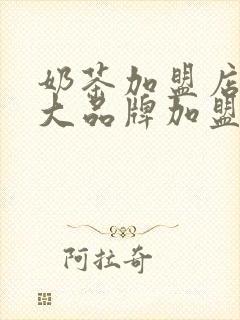 奶茶加盟店
大品牌加盟
阿拉奇